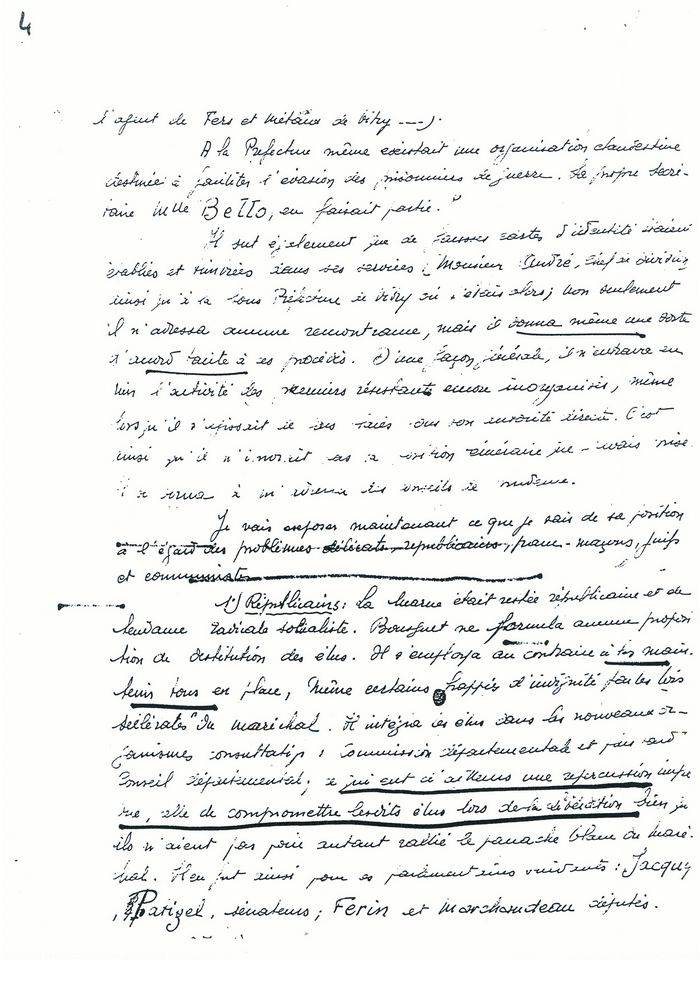 4
l'agent de Fers et Métaux de Vitry ---).
A la Préfecture même existait une organisation clandestine
destinée à faciliter l'évasion des prisonniers de guerre. Sa propre secré-
taire Mlle Bello, en faisait partie."
Il sut également que de fausses cartes d'identité étaient
établies et timbrées dans ses services (Monsieur André, chef de division
ainsi qu'à la Sous Préfecture de Vitry où j'étais alors; non seulement
il n'adressa aucune remontrance, mais il donna même une sorte
d'accord tacite à ces procédés. D'une façon générale, il n'entrava en
rien l'activité des premiers résistants encore inorganisés, même
lorsqu'il s'agissait de ses sous son autorité directe. C'est
ainsi qu'il n'ignorait pas la position que j'avais prise.
Il se borna à m'adresser des conseils de prudence.
Je vais exposer maintenant ce que je sais de sa position
à l'égard des problèmes délicats, republicains, franc-maçons, juifs
et communistes
1°) Républicains: la Marne était restée républicaine et de
tendance radicale socialiste. Bousquet ne formula aucune proposi
tion de destitution des élus. Il s'employa au contraire à les main-
tenir tous en place, même certains frappés d'indignité par les lois
scélérates" du maréchal. Il intégra ces élus dans les nouveaux or-
ganismes consultatifs: Commission départementale et plus tard
Conseil départemental; ce qui eut d'ailleurs une repercussion impré
vue, celle de compromettre lesdits élus lors de la libération bien qu
ils n'aient pas pour autant rallié le panache blanc du maré-
chal. Il en fut ainsi pour les parlementaires suivants: Jacquy
, Patizel, sénateurs; Ferin et Marchandeau députés.